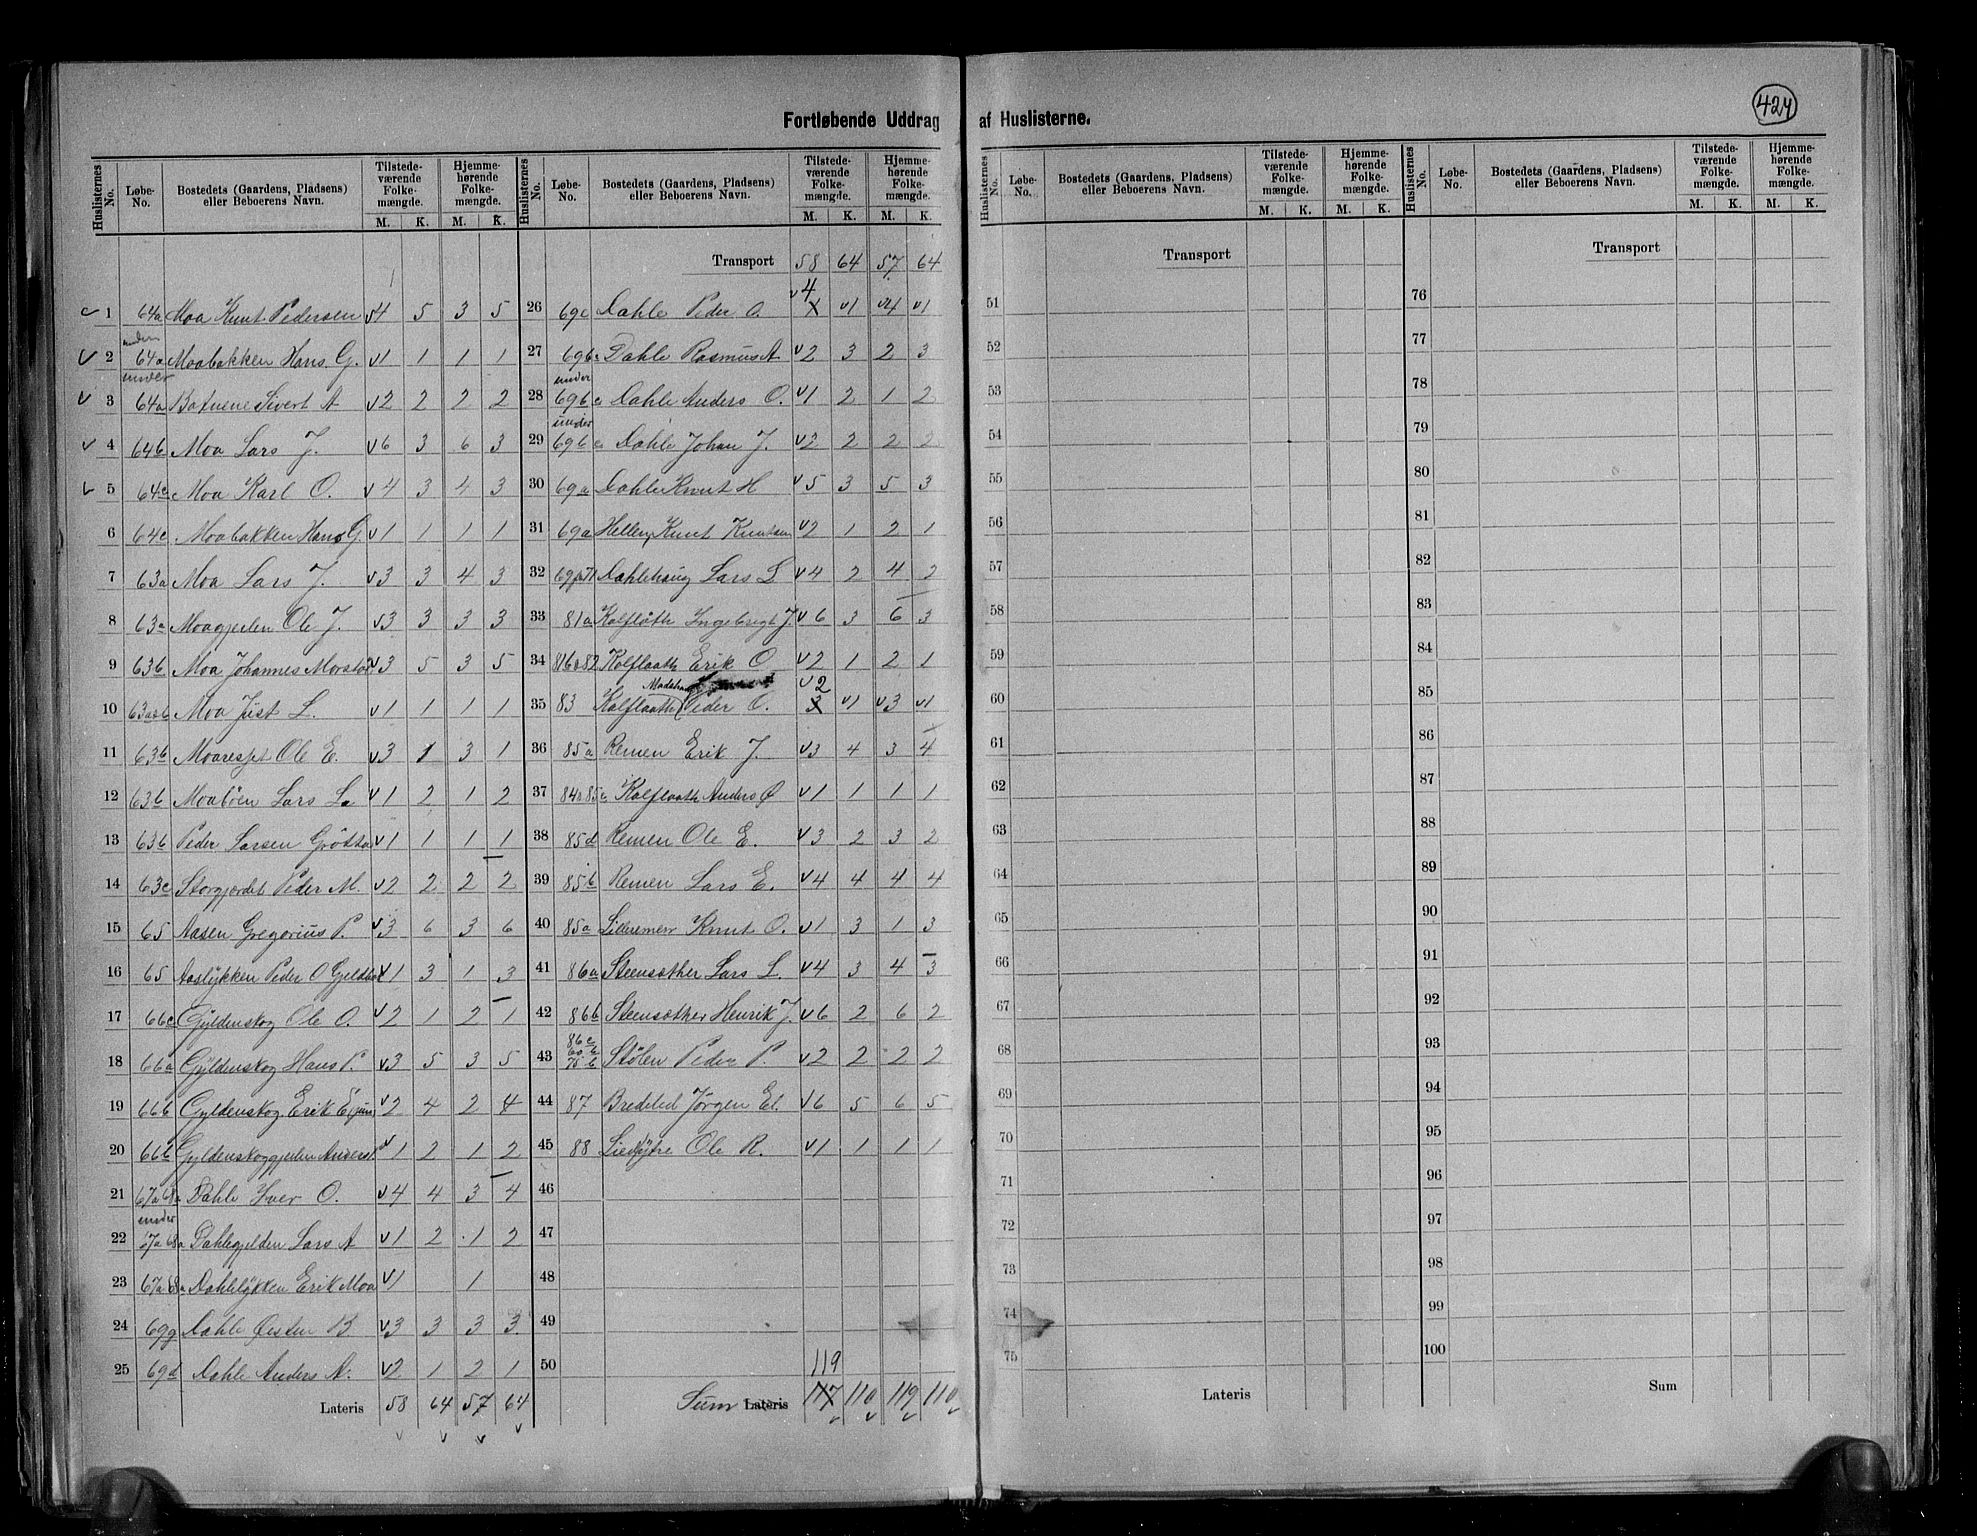 Fortløbende Uddrag af Huslisterne.
424
Huslisternes No. Løbe-No. Bostedets (Gaardens, Pladsens) eller Beboerens Navn. Tilstedeværende Folkemængde. M. K. Hjemmehørende Folkemængde. M. K.
1 64a Moa Knut Pedersen 4 5 3 5
2 under 64a Moabakken Hans G. 1 1 1 1
3 under 64a Sivert A 2 2 2 2
4 64b Moa Lars J. 6 3 6 3
5 64c Moa Karl O. 4 3 4 3
6 64c Moabakken Hans G 1 1 1 1
7 63a Moa Lars J. 3 3 4 3
8 63a Moagjerlen Ole J. 3 3 3 3
9 63b Moa Johannes 3 5 3 5
10 Moa Just L. 1 1 1 1
11 63b Ole E. 3 1 3 1
12 63b Moabøen Lars L. 1 2 1 2
13 63b Peder Larsen Grøtta 1 1 1 1
14 63c Storgjerdet Peder M. 2 2 2 2
15 65 Aasen Gregorius P. 3 6 3 6
16 65 Aaslykken Peder O 1 3 1 3
17 66c Gyldenskog Ole O. 2 1 2 1
18 66a Gyldenskog Hans P. 3 5 3 5
19 66b Gyldenskog Erik E 2 4 2 4
20 66b 1 2 1 2
21 67a 68a Dahle Iver O. 4 4 3 4
22 under 67a 68a Dahlegjelden Lars A 1 2 1 2
23 67a 68a Dahleløkken Erik Moa 1 1
24 69g Dahle Østen B 3 3 3 3
25 69d Dahle Anders A. 2 1 2 1
Lateris 58 64 57 64
Huslisternes No. Løbe-No. Bostedets (Gaardens, Pladsens) eller Beboerens Navn. Tilstedeværende Folkemængde. M. K. Hjemmehørende Folkemængde. M. K.
Transport 58 64 57 64
26 69c Dahle Peder O. 4 1 4 1
27 69b Dahle Rasmus A 2 3 2 3
28 under 69b Dahle Anders O. 1 2 1 2
29 under 69b Dahle Johan J. 2 2 2 2
30 69a Dahle Knut H 5 3 5 3
31 69a Hellen, Knut Knutsen 2 1 2 1
32 Dahlehaug Lars L 4 2 4 2
33 81a Kalfløth Ingebrigt J. 6 3 6 3
34 Kalflaath Erik O. 2 1 2 1
35 83 Kalflaath Peder O. 2 1 3 1
36 85a Remen Erik J. 3 4 3 4
37 Kalflaath Anders Ø 1 1 1 1
38 85d Remen Ole E. 3 2 3 2
39 85b Remen Lars E. 4 4 4 4
40 85a Lilleremen Knut O. 1 3 1 3
41 86a Steensæther Lars L. 4 3 4 3
42 86b Steensæther Henrik J. 6 2 6 2
43 86c Stølen Peder P. 2 2 2 2
44 87 Bredelid Jørgen El. 6 5 6 5
45 88 Ole R. 1 1 1 1
46
47
48
49
50
119
Sum Lateris 117 110 119 110
Huslisternes No. Løbe-No. Bostedets (Gaardens, Pladsens) eller Beboerens Navn. Tilstedeværende Folkemængde. M. K. Hjemmehørende Folkemængde. M. K.
Transport
51
52
53
54
55
56
57
58
59
60
61
62
63
64
65
66
67
68
69
70
71
72
73
74
75
Lateris
Huslisternes No. Løbe-No. Bostedets (Gaardens, Pladsens) eller Beboerens Navn. Tilstedeværende Folkemængde. M. K. Hjemmehørende Folkemængde. M. K.
Transport
76
77
78
79
80
81
82
83
84
85
86
87
88
89
90
91
92
93
94
95
96
97
98
99
100
Sum